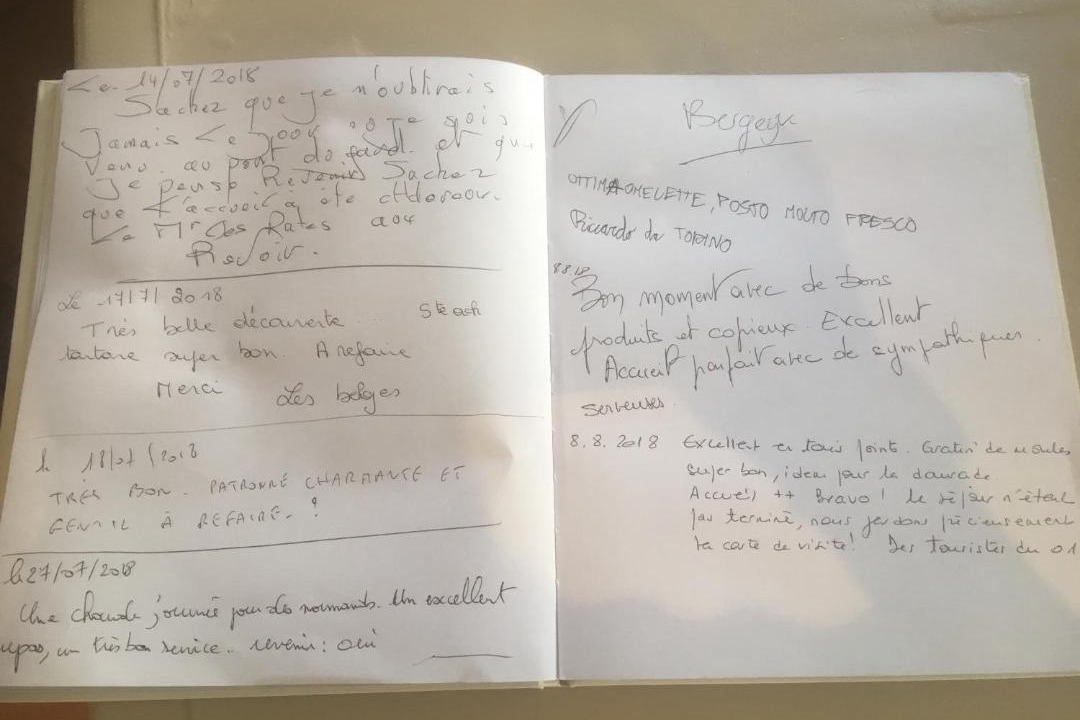 Le 14/07/2018
Sachez que je n'oublirais
Jamais Le Jour où Je suis
Venu au pont du gard. et que
Je pense Revenir Sachez
que L'accueil à été
Le Mr des Rates aux
Revoir.
Le 17/7/2018
Très belle découverte ... Steack
tartare super bon. A refaire
Merci Les belges
le 18/07/2018
TRÈS BON. PATRONNE CHARMANTE ET
GENTIL À REFAIRE. !
le 27/07/2018
Une chaude journée pour des normands. Un excellent
repas, un très bon service.. revenir : oui
OTTIMA OMELETTE, POSTO MOLTO FRESCO
Riccardo da TORINO
8.8.18
Bon moment avec de bons
produits et copieux. Excellent
Accueil parfait avec de sympathiques
serveuses.
8.8.2018 Excellent en tous points. Gratin de moules
super bon, idem pour la daurade
Accueil ++ Bravo ! le séjour n'étant
pas terminé, nous gardons précieusement
ta carte de visite ! Des touristes du 01